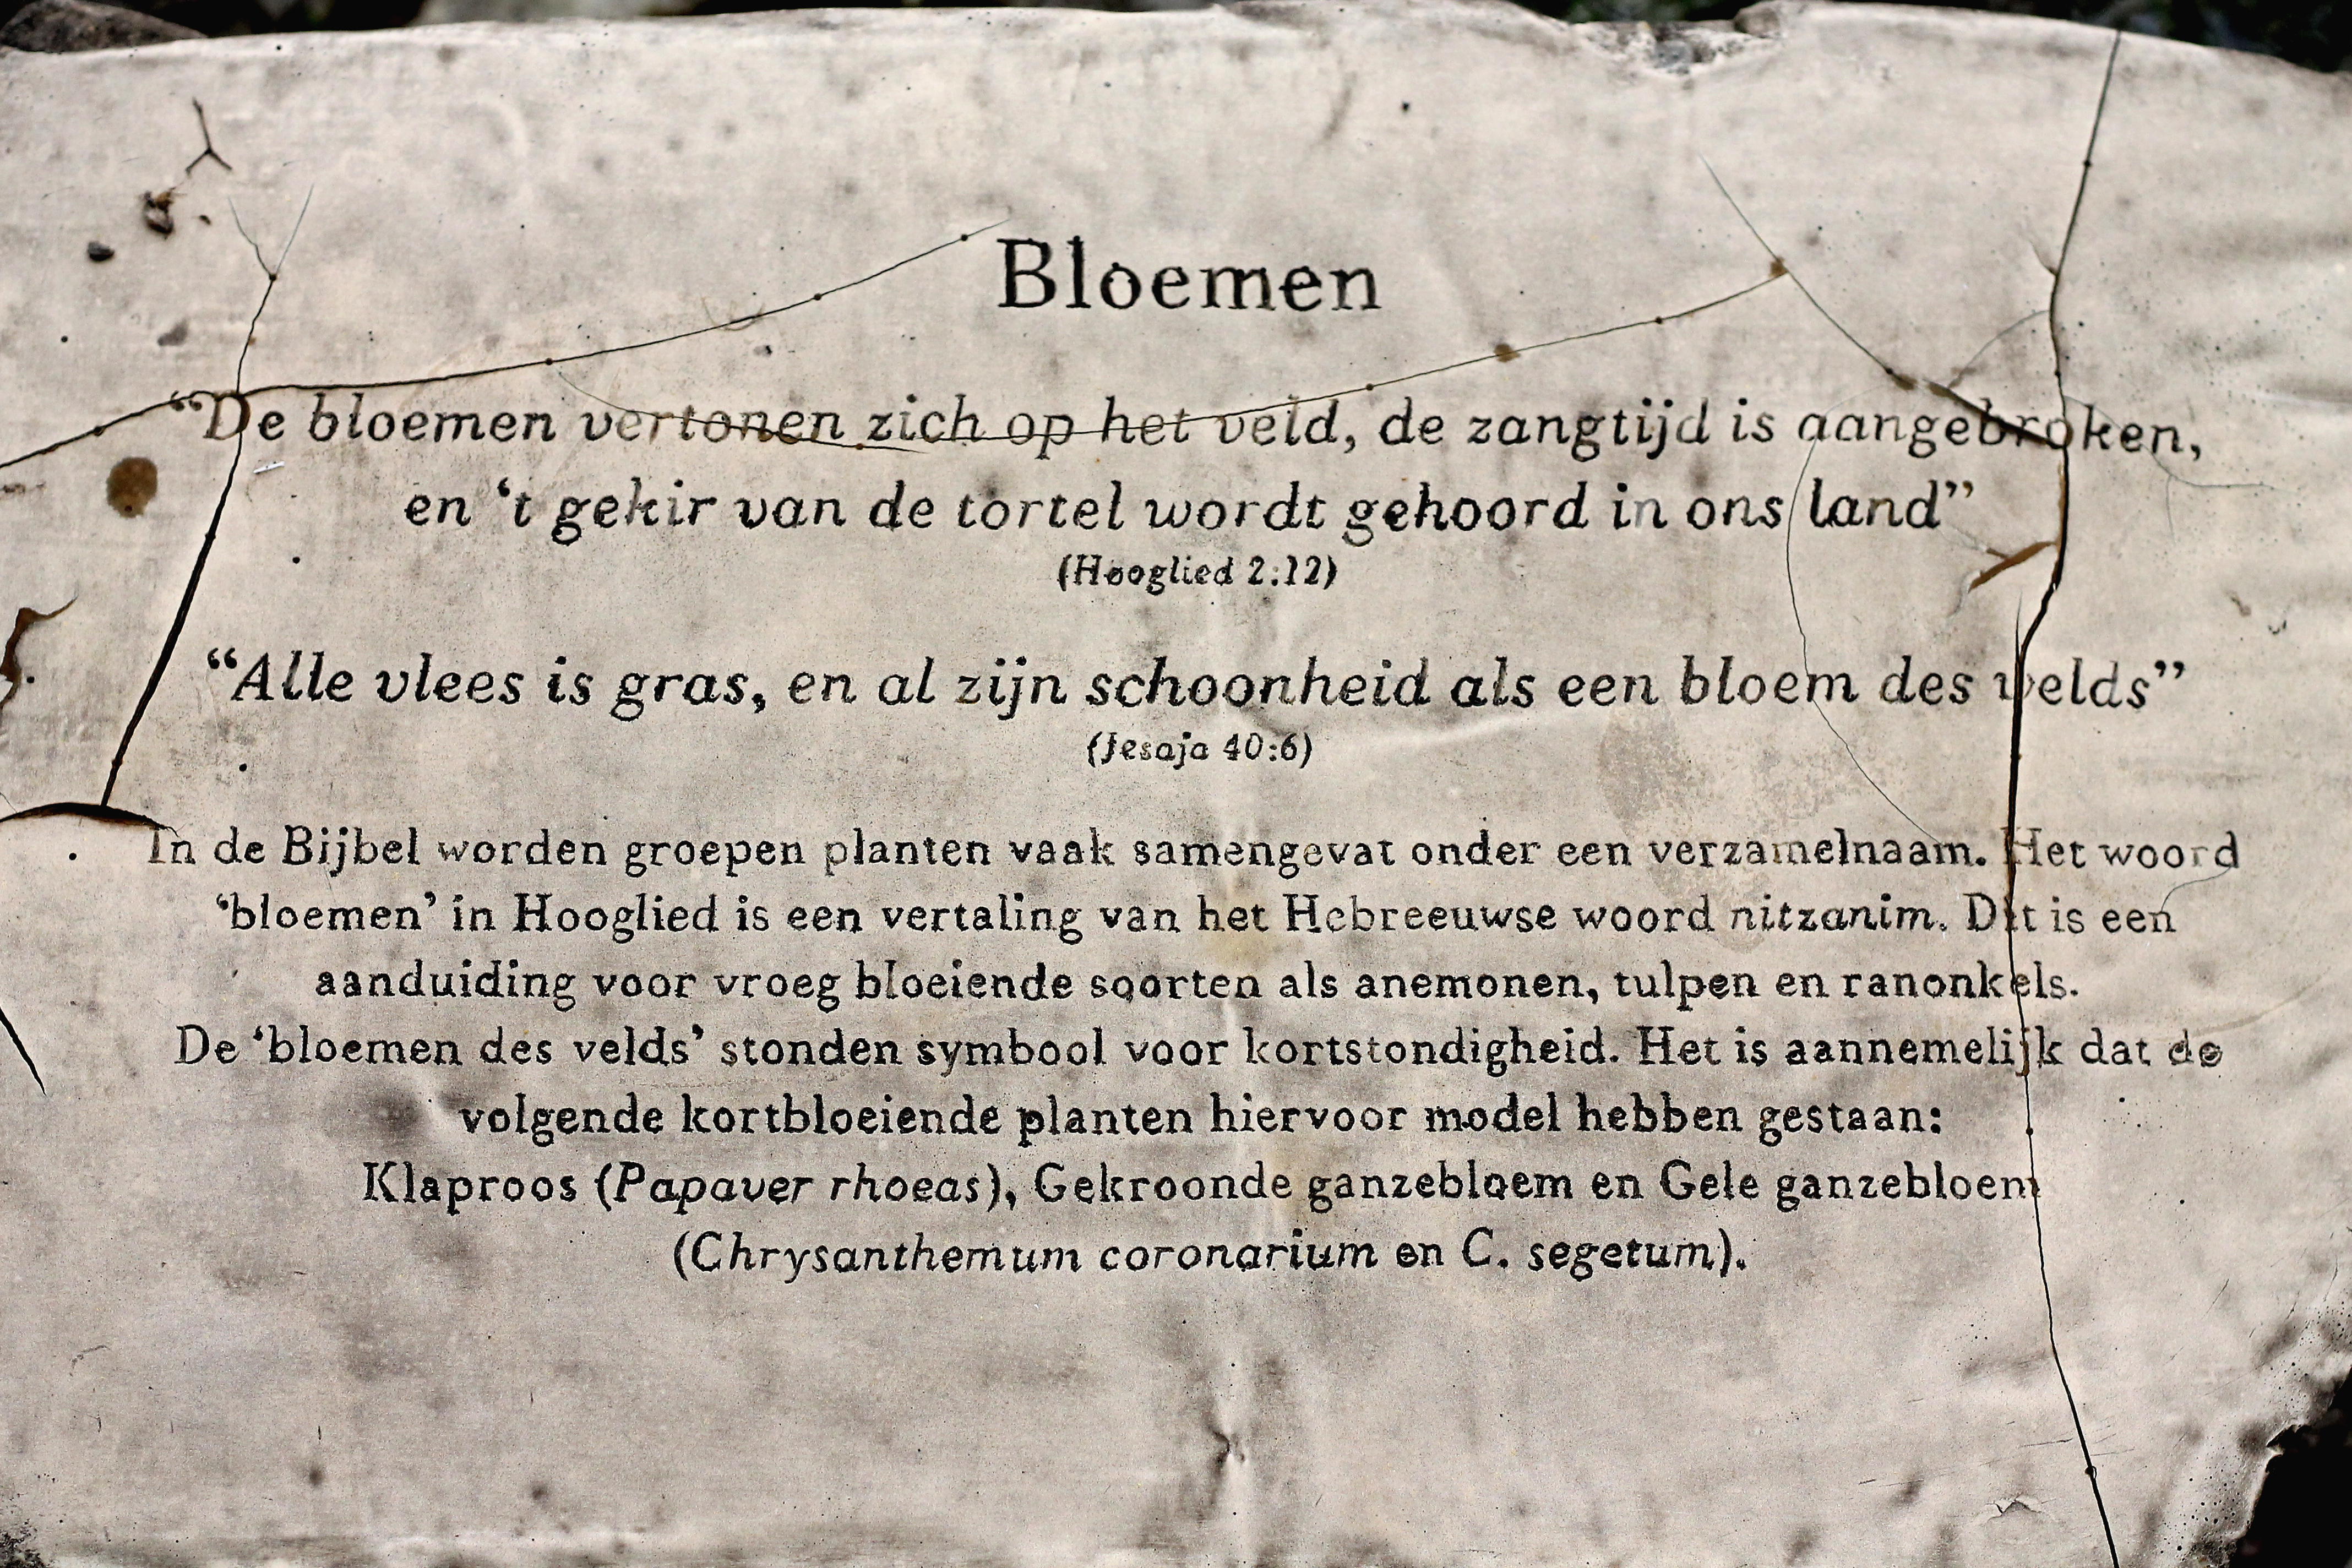 Bloemen
“De bloemen vertonen zich op het veld, de zangtijd is aangebroken,
en ‘t gekir van de tortel wordt gehoord in ons land”
(Hooglied 2:12)
“Alle vlees is gras, en al zijn schoonheid als een bloem des velds”
(Jesaja 40:6)
In de Bijbel worden groepen planten vaak samengevat onder een verzamelnaam. Het woord
‘bloemen’ in Hooglied is een vertaling van het Hebreeuwse woord nitzanim. Dit is een
aanduiding voor vroeg bloeiende soorten als anemonen, tulpen en ranonkels.
De ‘bloemen des velds’ stonden symbool voor kortstondigheid. Het is aannemelijk dat de
volgende kortbloeiende planten hiervoor model hebben gestaan:
Klaproos (Papaver rhoeas), Gekroonde ganzebloem en Gele ganzebloem
(Chrysanthemum coronarium en C. segetum).